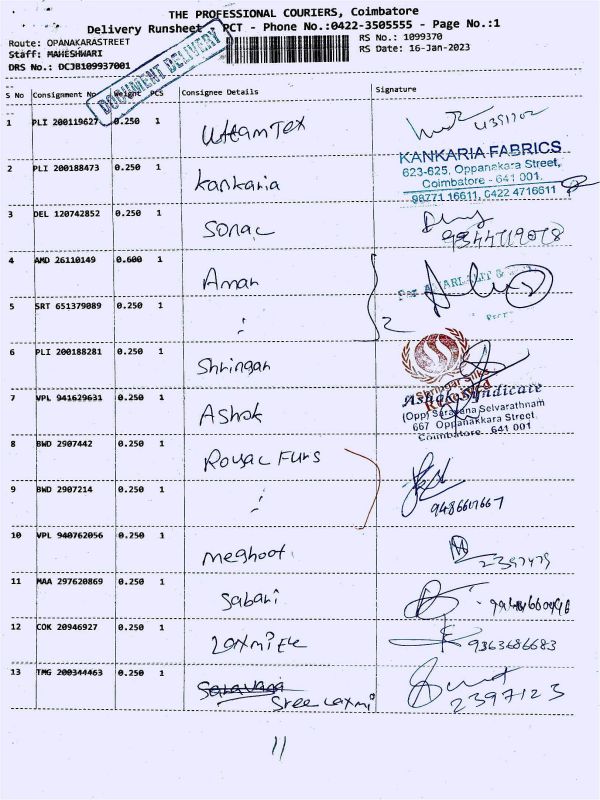 THE PROFESSIONAL COURIERS, Coimbatore
Delivery Runsheet PCT - Phone No.:0422-3505555 - Page No.:1
Route: OPANAKARASTREET
Staff: MAHESHWARI
DRS No.: DCJB109937001
RS No.: 1099370
RS Date: 16-Jan-2023
DOCUMENT DELIVERY
S No Consignment No Weight PCS Consignee Details Signature
1 PLI 200119627 0.250 1 UttamTex
KANKARIA FABRICS
623-625, Oppanakara Street,
Coimbatore - 641 001.
98771 16611, 0422 4716611
2 PLI 200188473 0.250 1 Kankaria
3 DEL 120742852 0.250 1 Sonac
4 AMD 26110149 0.600 1 Aman
5 SRT 651379089 0.250 1 : 2
6 PLI 200188281 0.250 1 Shringar
Shringar Silks
Received
7 VPL 941629631 0.250 1 Ashok
Ashok Syndicate
(Opp) Saravana Selvarathnam
667 Oppanakkara Street
Coimbatore 641 001
8 BWD 2907442 0.250 1 Royac Furs
9 BWD 2907214 0.250 1 :
10 VPL 940762056 0.250 1 Meghoot
11 MAA 297620869 0.250 1 Sabari
12 COK 20946927 0.250 1 Laxmi Ele 9363686683
13 TMG 200344463 0.250 1 Saravana
Sree Laxmi 2397123
11